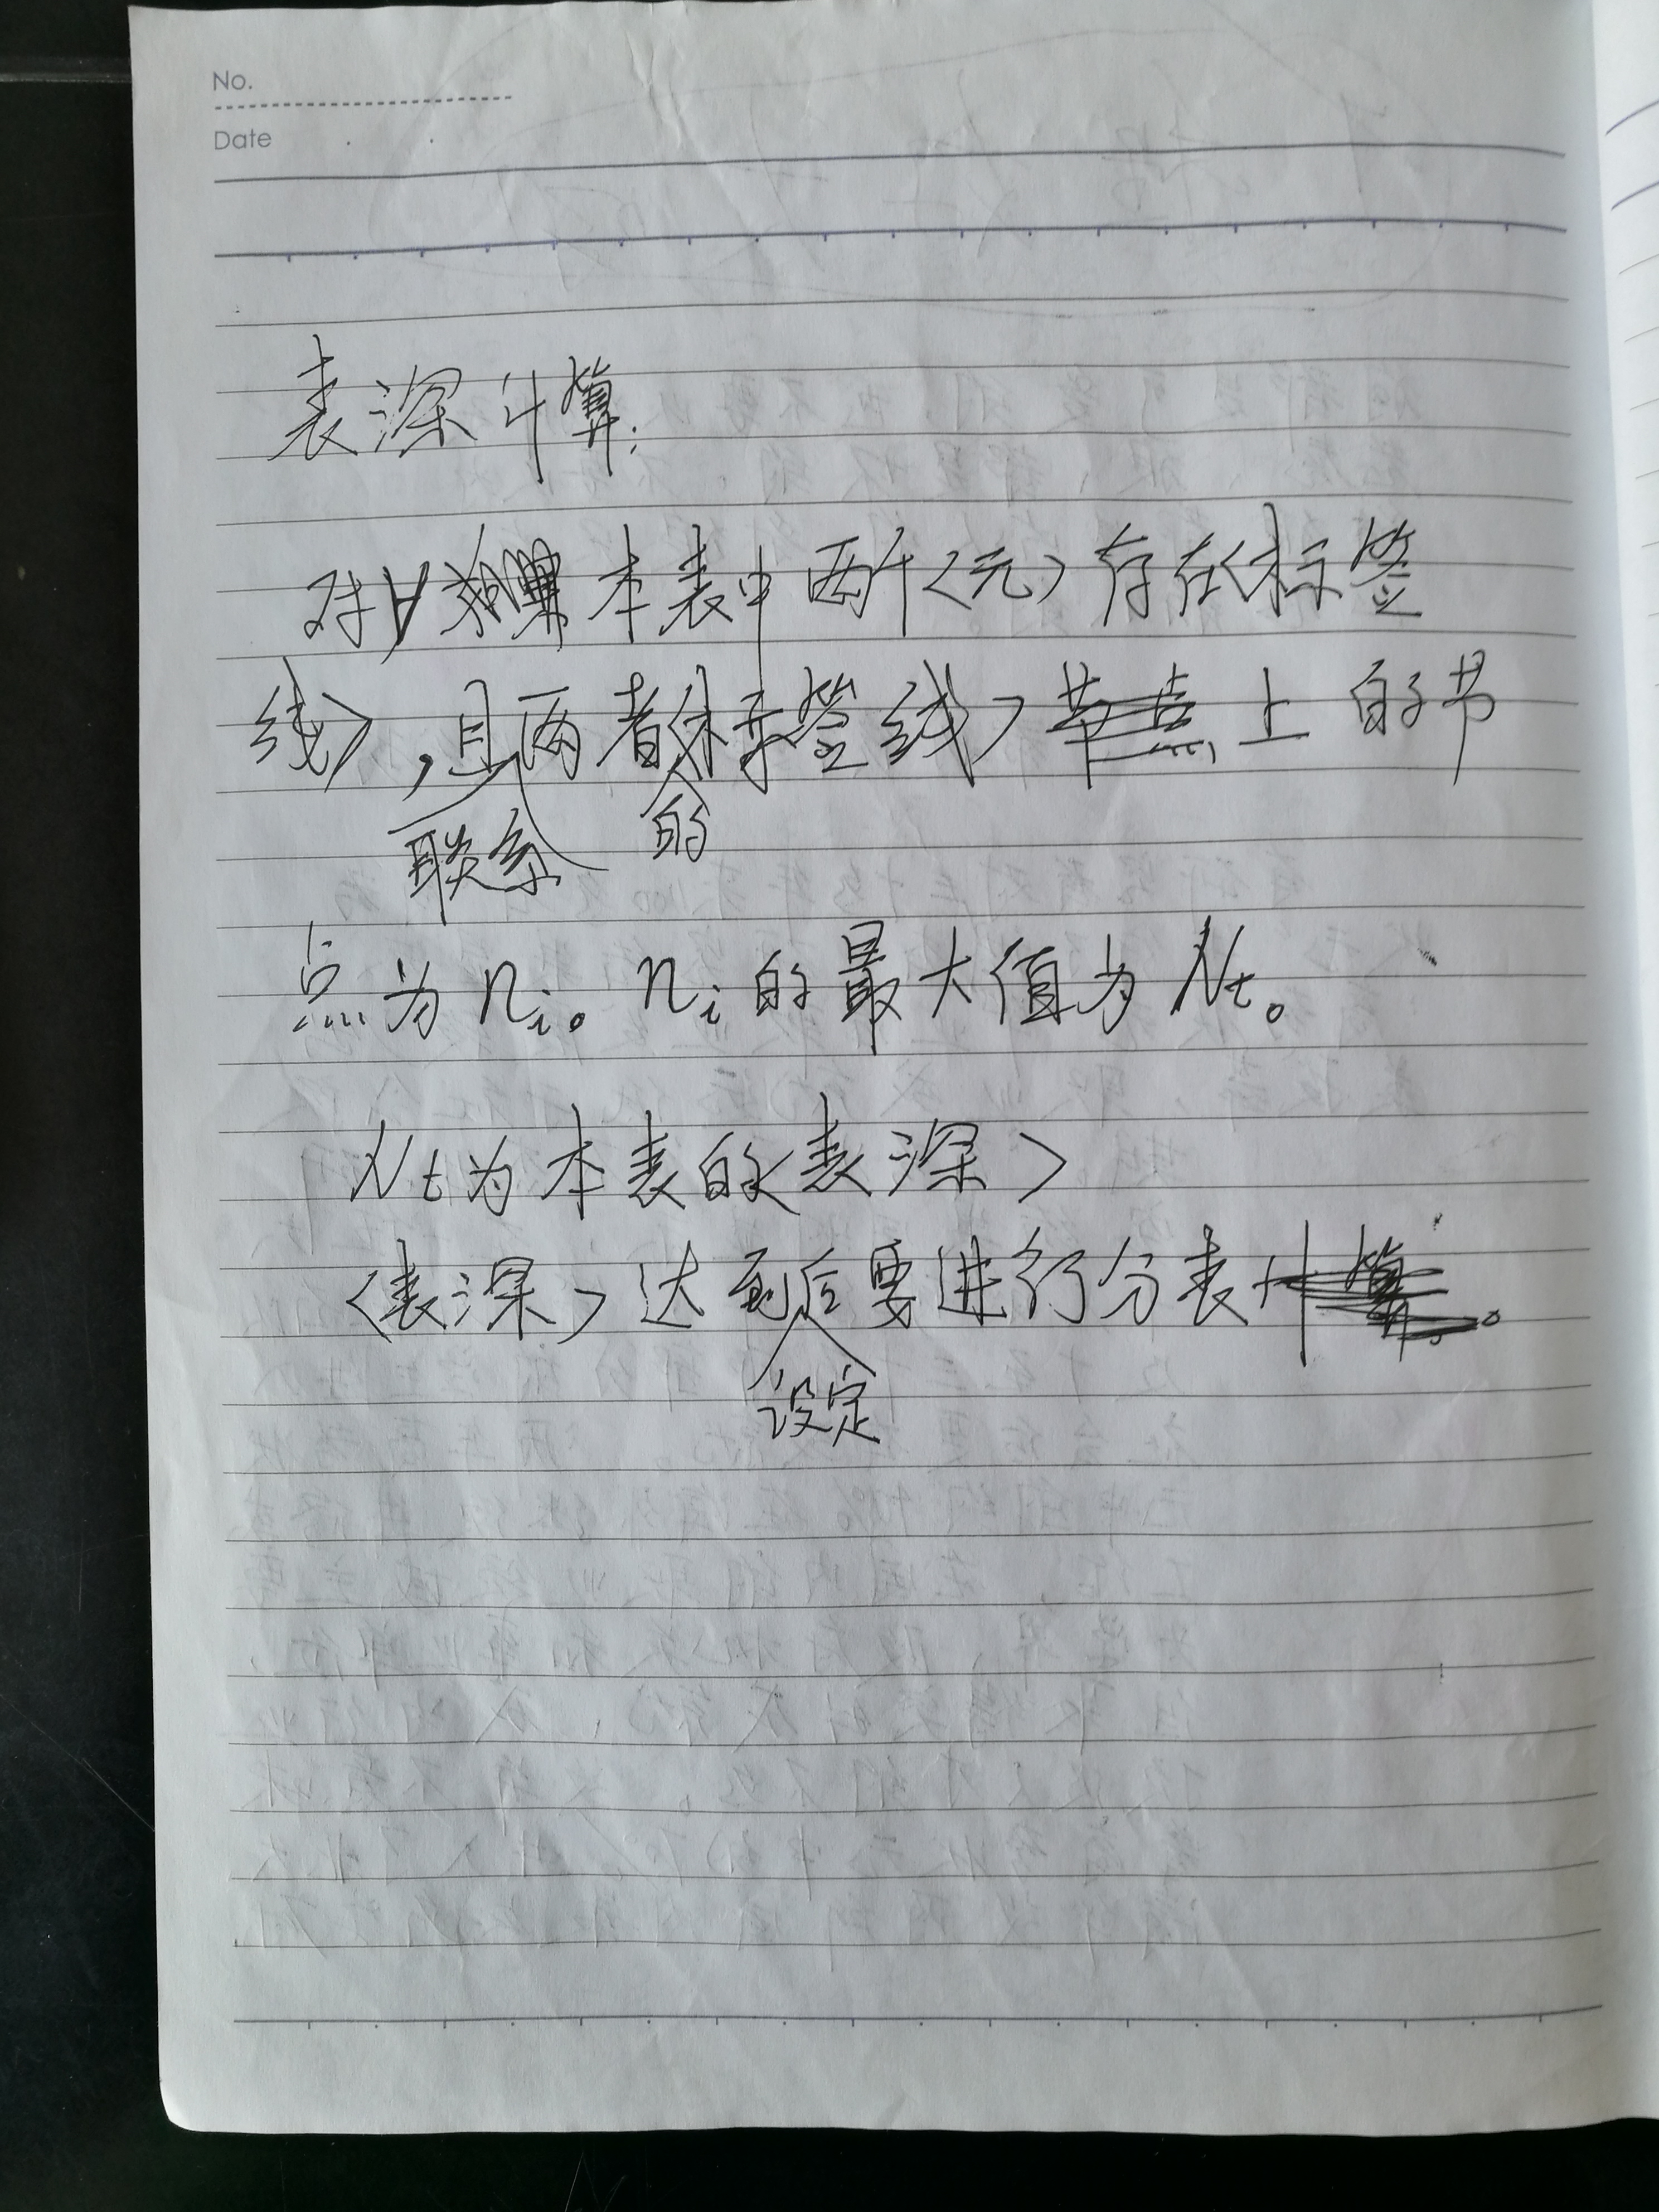 No.
Date
表深计算:
对∀本表中两个<元>存在<标签
线>,且联系两者的<标签线>上的节
点为ni。ni的最大值为Nt。
Nt为本表的<表深>
<表深>达到设定后要进行分表。